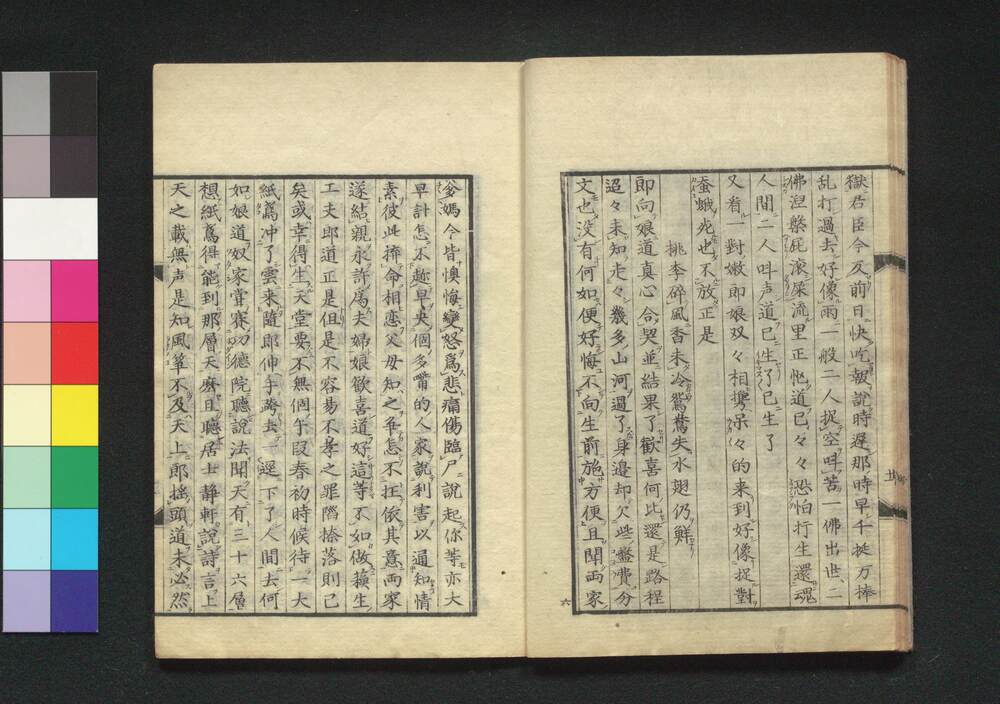 獄君臣今及前日快吃報説時遅那時早千挺万捧
乱打過去好像雨一般二人捉空叫苦一佛出世二
佛涅槃死滚屎流里正怆道已々々恐怕打生還魂
人間二人叫声道已生了已生了
又看一對嫩郎娘双々相携呆々的来到好像捉對
蚕蛾死也不放正是
桃李碎風香未冷鴛鴦失水翅仍鮮
即向娘道真心合契並結果了歡喜何比還是路程
迢々未知走々幾多山河過了身邉却欠些盤費分
文也没有何如便好悔不向生前施方便且聞両家
爹媽今皆懊悔變怒為悲痛傷臨尸說起你等亦大
早計怎不趂早央個多嘴的人家説利害以通知情
素彼此擠命相戀父母知之争怎不抂依其意両家
遂結親永許為夫婦娘歡喜道好這等不如做蘓生
工夫郎道正是但是不容易不孝之罪陥捺落則已
矣或幸得生天堂要不無個午段春初時候待一大
紙鳶冲了雲来隨郎伸手跨去一逕下了人間去何
如娘道奴家嘗賽功德院聽説法聞天有三十六層
想紙鳶得能到那層天麼且聽居士静軒説詩言上
天之載無声是知風箏不及天上郎揺頭道未必然
六